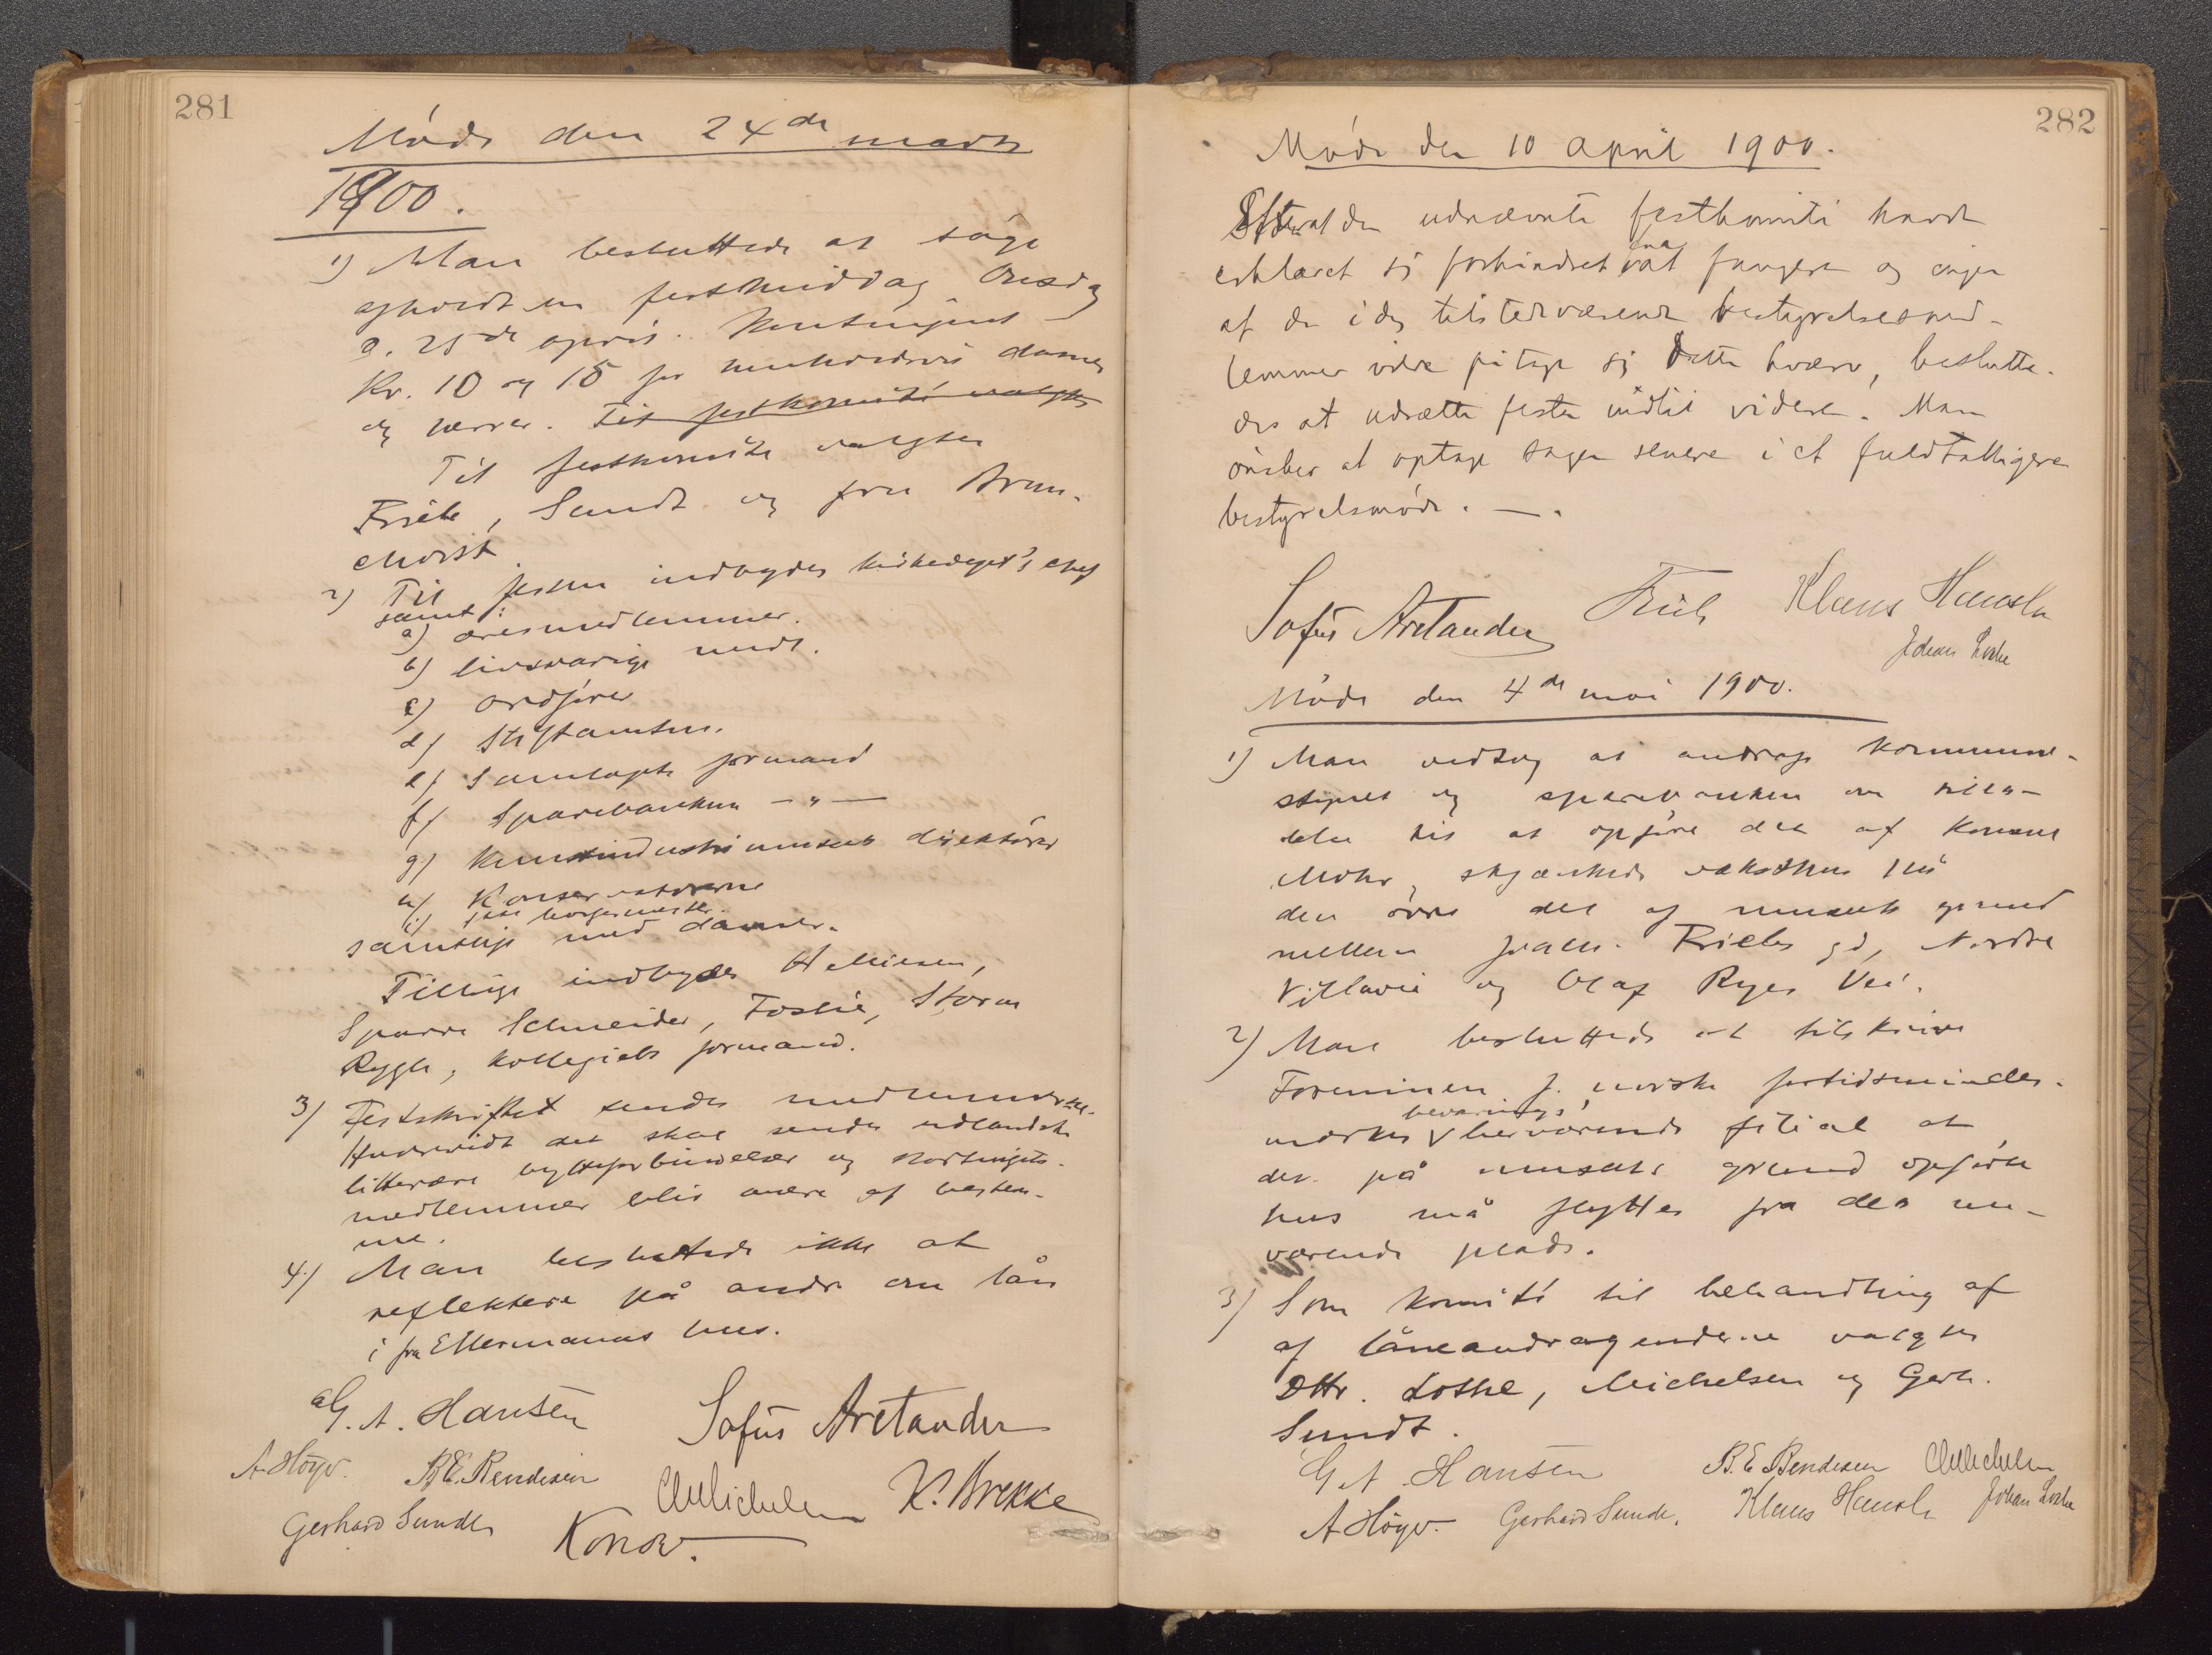 281
Møde den 24de marts
1900.
1) Man besluttede at søge
afholdt en festmiddag Onsdag
d. 25de april. Kontingent
Kr. 10 og 15 for henholdsvis damer
og herrer. Til festkomité valgtes
Til festkomite valgtes
Friele, Sundt og fru Brun-
chorst
2) Til festen indbydes kirkedept's chef
samt:
a) æresmedlemmer.
b) livsvarige medl.
c) ordfører
d) Stiftamtm.
e) Samlagets formand
f) Sparebanken — " —
g) Kunstindustrimuseets direktører
h) Konservatorerne
i) borgermester.
samtlige med damer.
Tillige indbydes H
Sparre Schneider, Foslie, Storm
Rygh, kollegiets formand.
3) Festskriftet sendes medlemmerne.
Hvorvidt det skal sendes udlandske
litterære bytteforbindelser og stortings-
medlemmer blir anere at bestem-
me.
4) Man besluttede ikke at
reflektere på andr. om lån
i fra Ellermanns hus.
G. A. Hansen Sofus Arctander
A Høyer. B.E. Bendixen CMichelsen K. Brekke
Gerhard Sundt Konow.
282
Møde den 10 April 1900.
Efterat den udnævnte festkomité havde
erklæret sig forhindret fra at fungere og ingen
af de idag tilstedeværende bestyrelsesmed-
lemmer vilde påtage sig dette hværv, beslutte-
des at udsætte festen indtil videre. Man
ønsker at optage sagen senere i et fuldtalligere
bestyrelsesmøde. —.
Sofus Arctander Friele Klaus Hanssen
Johan Lothe
Møde den 4de mai 1900.
1) Man vedtog at andrage kommune-
styret og sparebanken om
til at opføre det af Konsul
Mohr skjænkede væksthus på
den øvre del af museets grund
mellem Frieles gd, Nordre
Villavei og Olaf Ryes Vei.
2) Man besluttede at tilskrive
Foreningen f. norske fortidsmindes-
merkers bevarings' herværende filial at
det på museets grund opførte
hus må flyttes fra den nu-
værende plads.
3) Som komité til behandling af
af låneandragenderne valgtes
DHr. Lothe, Michelsen og Gerh.
Sundt.
G. A. Hansen B.E. Bendixen CMichelsen
A Høyer. Gerhard Sundt. Klaus Hanssen Johan Lothe